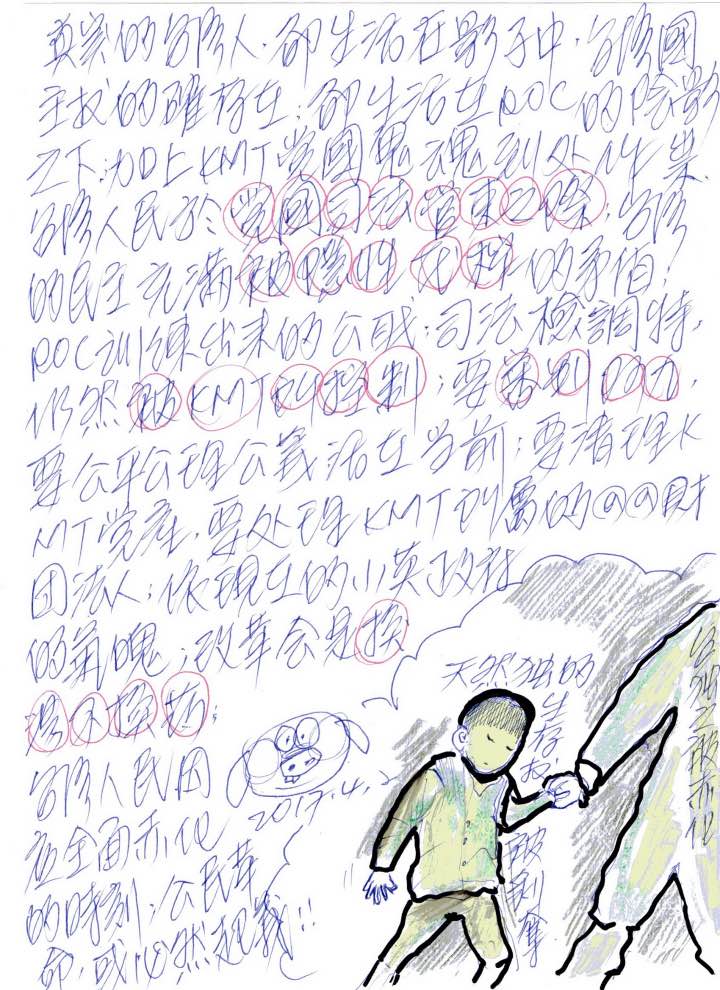 真實的台灣人，卻生活在影子中，台灣國
主权的確存在，卻生活在ROC的陰影
之下，加上KMT党國鬼魂到处作祟，
台灣人民於党國司法管束之際，台灣
的民主充滿被隱性支控的矛盾，
ROC訓練出來的公职，司法檢調特，
仍然被KMT所控制，要
要公平公理公義活在当前，要清理K
MT党產，要处理KMT所屬的@@財
团法人，依現在的小英政府
的氣魄，改革会是換
湯不換葯，
台灣人民因
应全面赤化
的時刻，公民革
命，或必然起義!!
2017.4.2
天然独的
生存权
被剝奪
台独之
被赤化